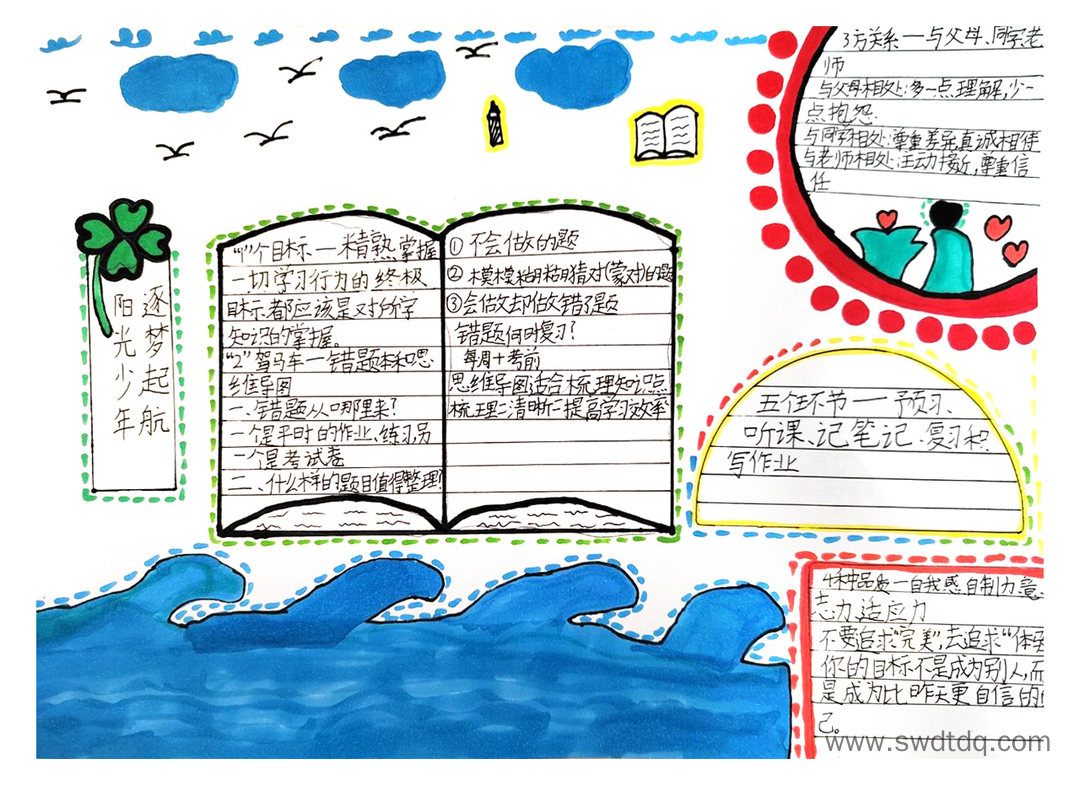 阳光少年
逐梦起航
"1"个目标—精熟掌握
一切学习行为的终极
目标、都应该是对所学
知识的掌握。
"2"驾马车—错题本和思
维导图
一、错题从哪里来?
一个是平时的作业、练习另
一个是考试卷
二、什么样的题目值得整理?
① 不会做的题
② 模模糊糊猜对(蒙对)的题
③ 会做却做错了题
错题何时复习?
每周+考前
思维导图适合梳理知识点
梳理=清晰=提高学习效率
3方关系—与父母、同学、老
师
与父母相处:多一点理解,少一
点抱怨.
与同学相处:尊重差异真诚相待
与老师相处:主动接近,尊重信
任
五个环节—预习、
听课、记笔记、复习积
写作业
4种品质—自我感自制力意
志力适应力
不要追求"完美",去追求"体
你的目标不是成为别人,而
是成为比昨天更自信的
己。
www.swdtdq.com